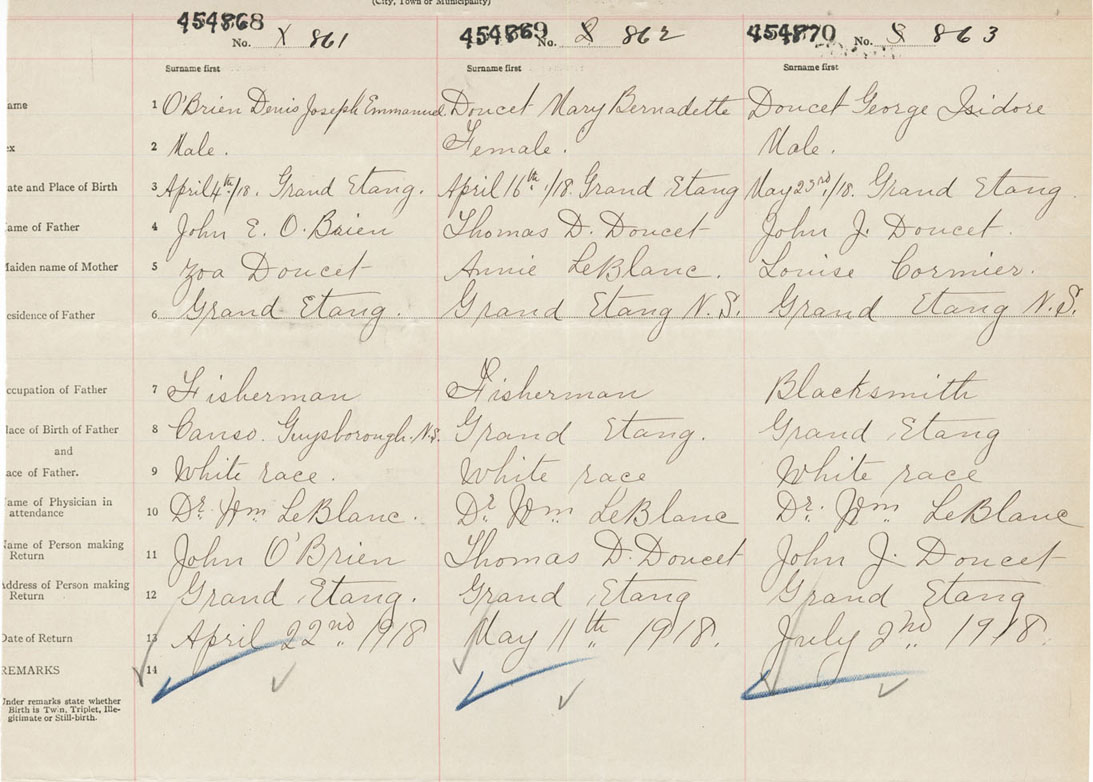 (City, Town or Municipality)
454868 454869 454870
No. X 861 No. 8 862 No. 8 863
Surname first Surname first Surname first
ame 1 O'Brien Denis Joseph Emmanuel Doucet Mary Bernadette Doucet George Isidore
ex 2 Male. Female. Male.
ate and Place of Birth 3 April 4th/18. Grand Etang. April 16th/18. Grand Etang May 23rd/18. Grand Etang
ame of Father 4 John E. O.Brien Thomas D. Doucet John J. Doucet.
Maiden name of Mother 5 Zoa Doucet Annie LeBlanc. Louise Cormier.
esidence of Father 6 Grand Etang. Grand Etang N.S. Grand Etang N.S.
ccupation of Father 7 Fisherman Fisherman Blacksmith
lace of Birth of Father 8 Canso. Guysborough. N.S. Grand Etang. Grand Etang
and
ace of Father. 9 White race. White race White race
ame of Physician in
attendance 10 Dr. Wm LeBlanc. Dr. Wm LeBlanc Dr. Wm LeBlanc
Name of Person making
Return 11 John O'Brien Thomas D. Doucet John J. Doucet
Address of Person making
Return 12 Grand Etang. Grand Etang Grand Etang
Date of Return 13 April 22nd 1918 May 11th 1918. July 2nd 1918.
REMARKS 14
Under remarks state whether
Birth is Twin, Triplet, Ille-
gitimate or Still-birth.